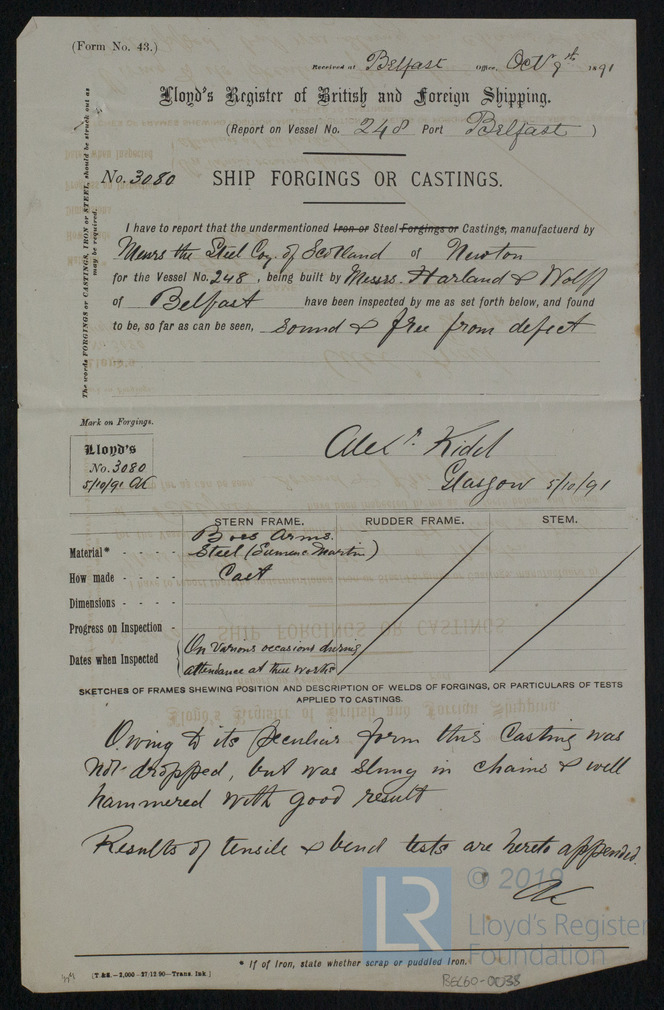 (Form No. 43.)
Received at Belfast Office, Oct 9th 1891
Lloyd's Register of British and Foreign Shipping.
(Report on Vessel No. 248 Port Belfast )
No. 3080 SHIP FORGINGS OR CASTINGS.
The words FORGINGS or CASTINGS, IRON or STEEL, should be struck out as
may be required.
I have to report that the undermentioned Iron or Steel Forgings or Castings, manufactuerd by
Messrs the Steel Coy. of Scotland of Newton
for the Vessel No. 248, being built by Messrs. Harland & Wolff
of Belfast have been inspected by me as set forth below, and found
to be, so far as can be seen, sound & free from defect
Mark on Forgings.
Lloyd's
No. 3080
5/10/91 AK
Alexr. Kidd
Glasgow 5/10/91
STERN FRAME. RUDDER FRAME. STEM.
Boss Arms.
Material* - - - - Steel (Siemens Martin)
How made - - - - Cast
Dimensions - - - -
Progress on Inspection -
Dates when Inspected On various occasions during
attendance at these works
SKETCHES OF FRAMES SHEWING POSITION AND DESCRIPTION OF WELDS OF FORGINGS, OR PARTICULARS OF TESTS
APPLIED TO CASTINGS.
Owing to its peculiar form this Casting was
not dropped, but was slung in chains & well
hammered with good result
Results of tensile & bend tests are hereto appended.
AK
LR
© 2019
Lloyd's Register
Foundation
* If of Iron, state whether scrap or puddled Iron.
[T.&S.—2,000—27/12/90—Trans. Ink.]
BEL60-0038